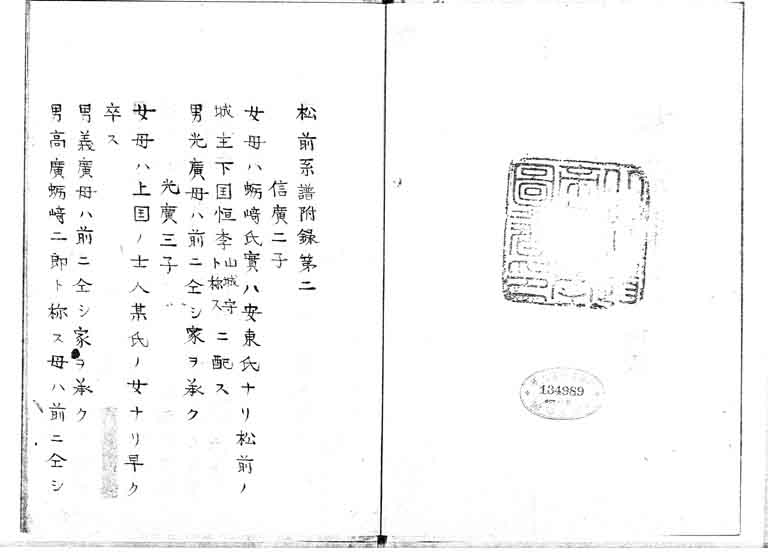 134989
松前系譜附録第二
信廣二子
女母ハ蛎﨑氏實ハ安東氏ナリ松前ノ
城主下国恒季山城守ト称スニ配ス
男光廣母ハ前ニ仝シ家ヲ承ク
光廣三子
女母ハ上国ノ士人某氏ノ女ナリ早ク
卒ス
男義廣母ハ前ニ仝シ家ヲ承ク
男高廣蛎﨑二郎ト称ス母ハ前ニ仝シ